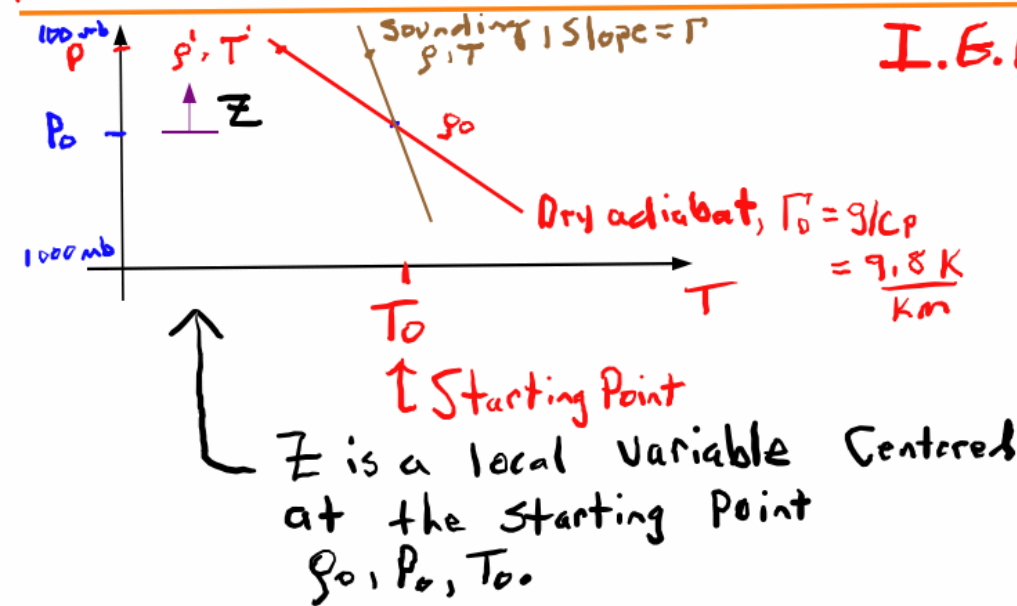 100 mb
P
ρ', T'
Sounding, Slope = Γ
ρ, T
I.E.
Z
P₀
ρ₀
Dry adiabat, Γ_D = g/cp
= 9.8 K
km
1000 mb
T
T₀
↑ Starting Point
Z is a local variable Centered
at the starting Point
ρ₀, P₀, T₀.